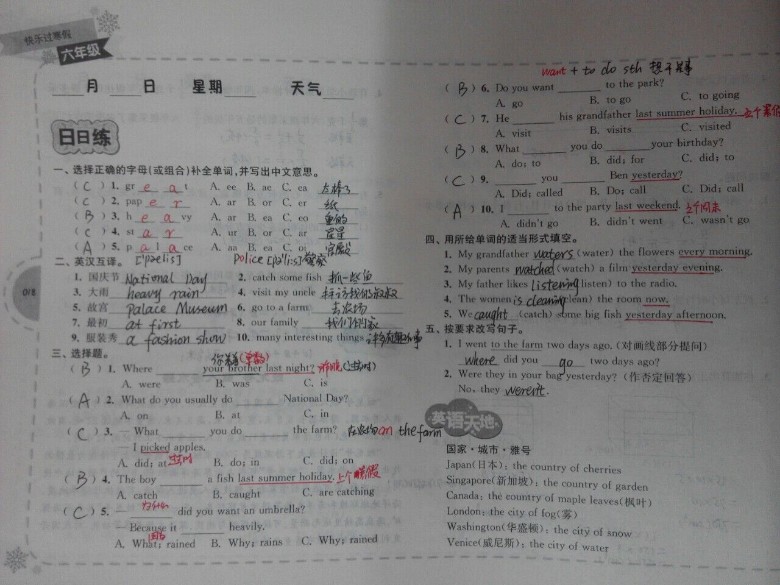 快乐过寒假
六年级
月 日 星期 天气
日日练
一、选择正确的字母(或组合)补全单词,并写出中文意思。
( C ) 1. gr e a t A. ee B. ae C. ea 太棒了
( C ) 2. pap e r A. ar B. or C. er 纸
( B ) 3. h e a vy A. ar B. ea C. eo 重的
( C ) 4. st a r A. ur B. or C. ar 星星
( A ) 5. p a l a ce A. aa B. ea C. oi 宫殿
二、英汉互译。 ['pælis] police [pə'lis]警察
1. 国庆节 National Day 2. catch some fish 抓一些鱼
3. 大雨 heavy rain 4. visit my uncle 拜访我的叔叔
5. 故宫 Palace Museum 6. go to a farm 去农场
7. 最初 at first 8. our family 我们的家
9. 服装秀 a fashion show 10. many interesting things 许多有趣的事
三、选择题。 你弟弟(单数)
( B ) 1. Where your brother last night? 昨晚
A. were B. was C. is
( A ) 2. What do you usually do National Day?
A. on B. at C. in
( C ) 3. — What you do the farm? 在农场on the farm
— I picked apples.
A. did; at B. do; in C. did; on
( B ) 4. The boy a fish last summer holiday. 上个暑假
A. catch B. caught C. are catching
( C ) 5. — 为什么 did you want an umbrella?
— Because it heavily.
A. What; rained B. Why; rains C. Why; rained
018
want + to do sth 想干某事
( B ) 6. Do you want to the park?
A. go B. to go C. to going
( C ) 7. He his grandfather last summer holiday.
A. visit B. visits C. visited
( B ) 8. What you do your birthday?
A. do; to B. did; for C. did; to
( C ) 9. you Ben yesterday?
A. Did; called B. Do; call C. Did; call
( A ) 10. I to the party last weekend. 上个周末
A. didn't go B. didn't went C. wasn't go
四、用所给单词的适当形式填空。
1. My grandfather waters (water) the flowers every morning.
2. My parents watched (watch) a film yesterday evening.
3. My father likes listening (listen) to the radio.
4. The women is cleaning (clean) the room now.
5. We caught (catch) some big fish yesterday afternoon.
五、按要求改写句子。
1. I went to the farm two days ago. (对画线部分提问)
where did you go two days ago?
2. Were they in your bag yesterday? (作否定回答)
No, they weren't.
英语天地
国家·城市·雅号
Japan(日本): the country of cherries
Singapore(新加坡): the country of garden
Canada: the country of maple leaves(枫叶)
London: the city of fog(雾)
Washington(华盛顿): the city of snow
Venice(威尼斯): the city of water